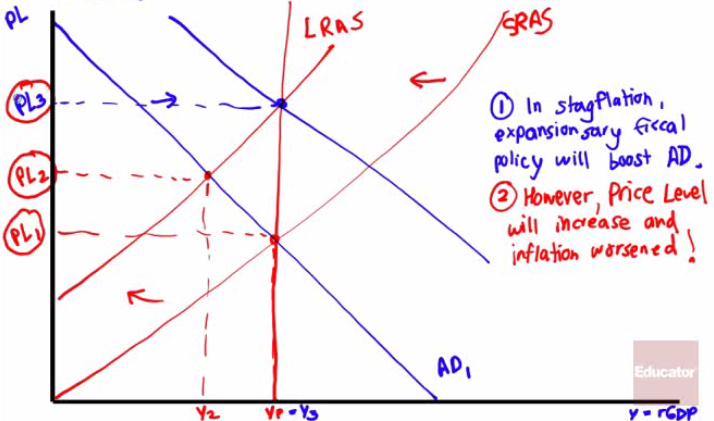 PL
LRAS
SRAS
PL3
PL2
PL1
① In stagflation,
expansionsary fiscal
policy will boost AD.
② However, Price Level
will increase and
inflation worsened!
Educator
AD1
Y2
YP = Y3
Y = rGDP